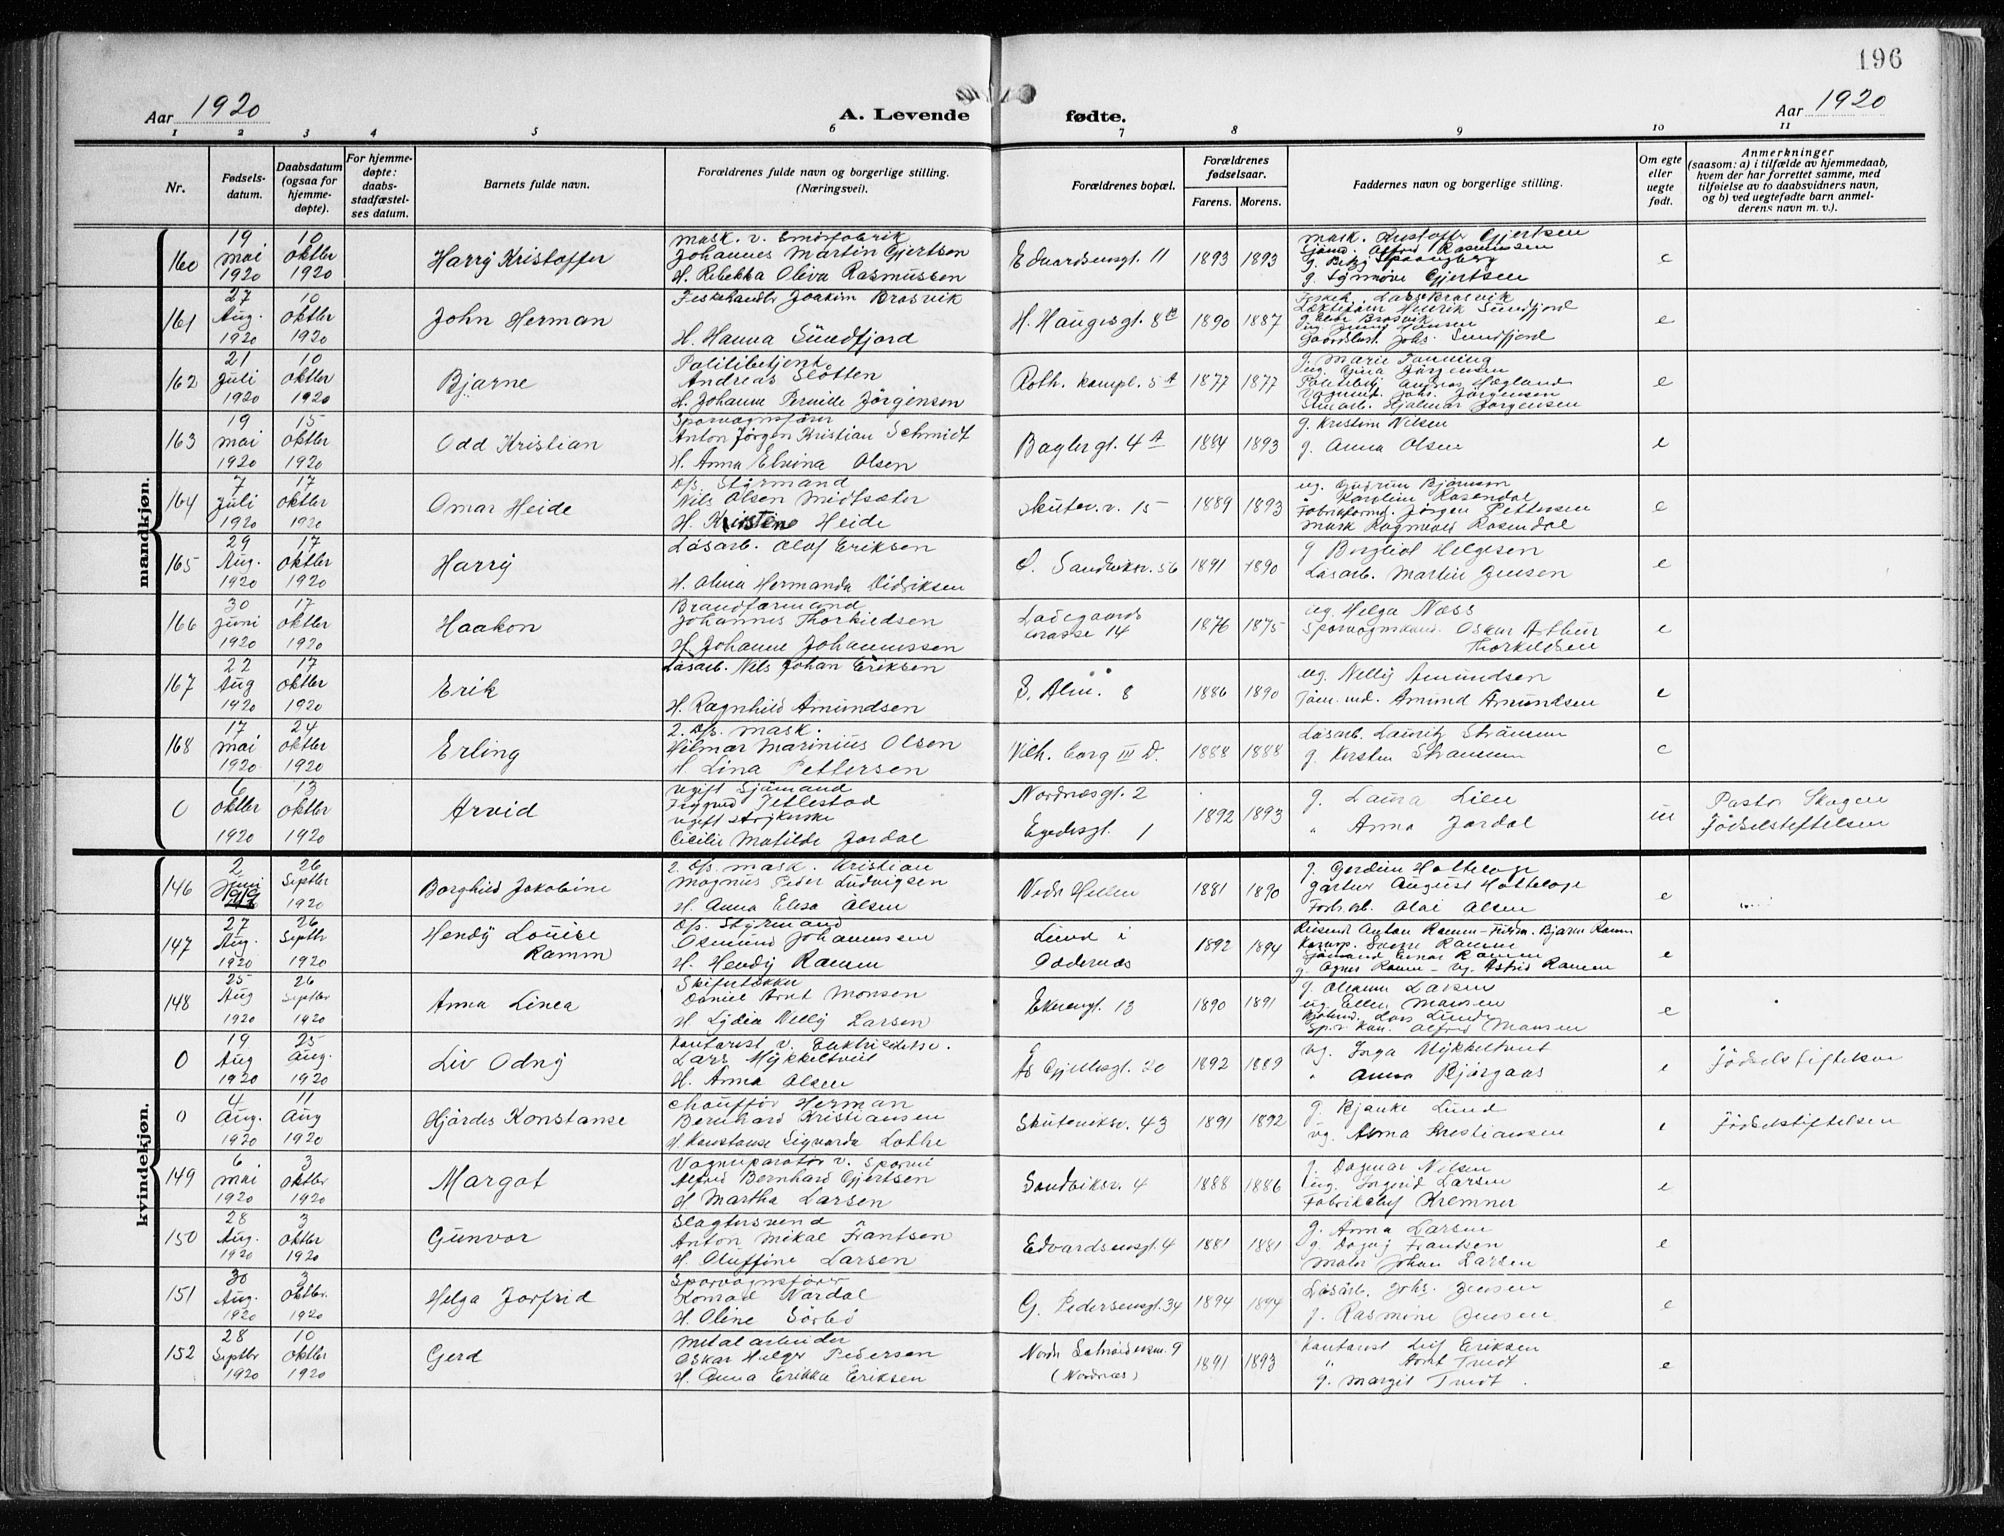 196
Aar 1920
A. Levende fødte.
Aar 1920
1 2 3 4 5 6 7 8 9 10 11
Nr.
Fødsels-
datum.
Daabsdatum
(ogsaa for
hjemme-
døpte).
For hjemme-
døpte:
daabs-
stadfæstel-
ses datum.
Barnets fulde navn.
Forældrenes fulde navn og borgerlige stilling.
(Næringsvei).
Forældrenes bopæl.
Forældrenes
fødselsaar.
Farens. Morens.
Faddernes navn og borgerlige stilling.
Om egte
eller
uegte
født.
Anmerkninger
(saasom: a) i tilfælde av hjemmedaab,
hvem der har forrettet samme, med
tilføielse av to daabsvidners navn,
og b) ved uegtefødte barn anmel-
derens navn m. v.).
mandkjøn.
160
19 mai 1920
10 oktbr 1920
Harry Kristoffer
mask. v. Smörfabrik
Johannes Martin Gjertsen
H. Rebekka Oliva Rasmussen
Edvardsensgt 11
1893 1893
mask. Kristoffer Gjertsen
Sjömd. Alfred Rasmussen
g. Synnöve Gjertsen
e
161
27 Aug. 1920
10 oktbr 1920
John Herman
Fiskehandler Joakim Brosvik
H. Hanna Sündfjord
H. Haugesgt. 8 B
1890 1887
Fiskeh. Lars Brosvik
Henrik Sundfjord
Johs. Sundfjord
e
162
21 Juli 1920
10 oktbr 1920
Bjarne
Politibetjent
Andreas Slotten
H. Johanne Pernille Jörgensen
Roth. kompl. 5 A
1877 1877
g. Marie Fanning
ug. Gina Jörgensen
Politibtj Andreas Hægland
Johs. Jörgensen
Hjalmar Jörgensen
e
163
19 mai 1920
15 oktbr 1920
Odd Kristian
Sporvognsförer
Anton Jörgen Kristian Schmidt
H. Anna Elvina Olsen
Baglergt. 4 A
1884 1893
g. Kristine Nilsen
g. Anna Olsen
e
164
7 Juli 1920
17 oktbr 1920
Omar Heide
Ds. Styrmand
Nils Olsen Midtsæter
H. Kristine Heide
Skutev.v. 15
1889 1893
ug. Gudrun Björnson
" Karoline Rosendal
Fabrikformd. Jörgen Pettersen
Mask Ragnvald Rosendal
e
165
29 Aug. 1920
17 oktbr 1920
Harry
Løsarb. Olaf Eriksen
H. Olina Hermanda Didriksen
Ö. Sandviksv. 56
1891 1890
g Borgliot Helgesen
Løsarb. Martin Jensen
e
166
30 Juni 1920
17 oktbr 1920
Haakon
Brandformand
Johannes Thorkildsen
H. Johanne Johannessen
Ladegaards
grasse 14
1876 1875
ug. Helga Næss
Sporvognskond. Oskar Arthur
Thorkildsen
e
167
22 Aug 1920
17 oktbr 1920
Erik
Løsarb. Nils Johan Eriksen
H. Ragnhild Amundsen
S. Alm. 8
1886 1890
ug. Nelly Amundsen
Töm.md. Amund Amundsen
e
168
17 mai 1920
24 oktbr 1920
Erling
2. Ds. mask.
Vilmar Marinius Olsen
H. Lina Pettersen
Vilh. borg III D.
1888 1888
Løsarb. Lauritz Strämsen
g. Kirsten Strämsen
e
0
6 oktbr 1920
13 oktbr 1920
Arvid
ugift Sjömand
Sigurd Tetlestad
ugift strykerske
Cecilie Matilde Jordal
Nordnæsgt. 2
Egedesgt. 1
1892 1893
g. Laura Lien
" Anna Jordal
u
Pastor Skagen
Fødselstiftelsen
kvindekjøn.
146
2 Juni
26 Septbr 1920
Borghild Jakobine
2. Ds. mask. Kristian
Magnus Peder Ludvigsen
H. Anna Elisa Olsen
Nedr Hellen
1881 1890
g. Gerdine Hatteloge
gartner August Hatteloge
Olai Olsen
e
147
27 Aug. 1920
26 Septbr 1920
Hendy Louise
Ramm
Ds. Styrmand
Osmund Johannessen
H. Hendy Ramm
Lund i
Oddernæs
1892 1894
Reisend. Anton Ramm – Bjarne Ramm
Korresp. Sverre Ramm
Sjömand Einar Ramm
g. Agnes Ramm – ug. Astrid Ramm
e
148
25 Aug 1920
26 Septbr 1920
Anna Linea
Skifertækker
Daniel Arnt Monsen
H. Lydia Nelly Larsen
Ekrengt. 13
1890 1891
g. Oleanna Larsen
ug. Ellen Mansen
Lars Lunde
Alfred Mansen
e
0
19 Aug 1920
25 Aug. 1920
Liv Odny
kontorist v. Elektricitetsv.
Lars Mykkeltveit
H. Anna Olsen
Ås Gjellesgt. 20
1892 1889
ug. Inga Mykkeltveit
" Anna Bjørgaas
e
Fødselstiftelsen
0
4 Aug. 1920
11 Aug 1920
Hjördis Konstanse
Chauffør Herman
Bernhard Kristiansen
H. Konstanse Sigvarda Lothe
Skuteviksv. 43
1891 1892
g. Bjanka Lund
ug. Anna Kristiansen
e
Fødselstiftelsen
149
6 mai 1920
3 oktbr 1920
Margot
Vognreparatør v. Sporvei
Alfred Bernhard Gjertsen
H Martha Larsen
Sandviksv. 4
1888 1886
g. Dagmar Nilsen
ug. Ingerid Larsen
Fabrikchef Kremner
e
150
28 Aug. 1920
3 oktbr 1920
Gunvor
Slagtersvend
Anton Mikal Frantsen
H. Oluffine Larsen
Edvardsensgt 4
1881 1881
g. Anna Larsen
g. Dagny Frantsen
Maler Johan Larsen
e
151
30 Aug. 1920
3 oktbr. 1920
Helga Jorfrid
Sporvognsfører
Konrad Nordal
H. Oline Sörbö
G. Pedersensgt. 34
1894 1894
Løsarb. Johs. Jensen
g. Rasmine Jensen
e
152
28 Septbr 1920
10 oktbr 1920
Gerd
Metalarbeider
Oskar Helge Pedersen
H. Anna Erikka Eriksen
Nordr 9
(Nordnæs)
1891 1893
Kontorist Leif Eriksen
" Arnt Tvedt
g. Margit Tvedt
e